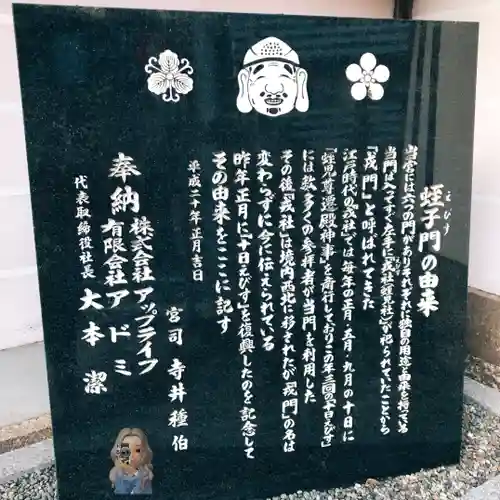 蛭子門の由来
えびす
当宮には六つの門がありそれぞれに独自の用途と由来を持っている
当門は入ってすぐ左手に「戎社（蛭児社）」が祀られていたことから
えびす
「戎門」と呼ばれてきた
江戸時代の「戎社」では毎年の正月・五月・九月の十日に
「蛭児尊遷殿神事」を斎行しておりこの年三回の「十日えびす」
には数多くの参拝者が当門を利用した
その後「戎社」は境内西北に移されたが「戎門」の名は
変わらずに今に伝えられている
昨年正月に「十日えびす」を復興したのを記念して
その由来をここに記す
平成二十年正月吉日
宮司 寺井種伯
奉納
株式会社アップライフ
有限会社アドミ
代表取締役社長 大本 潔